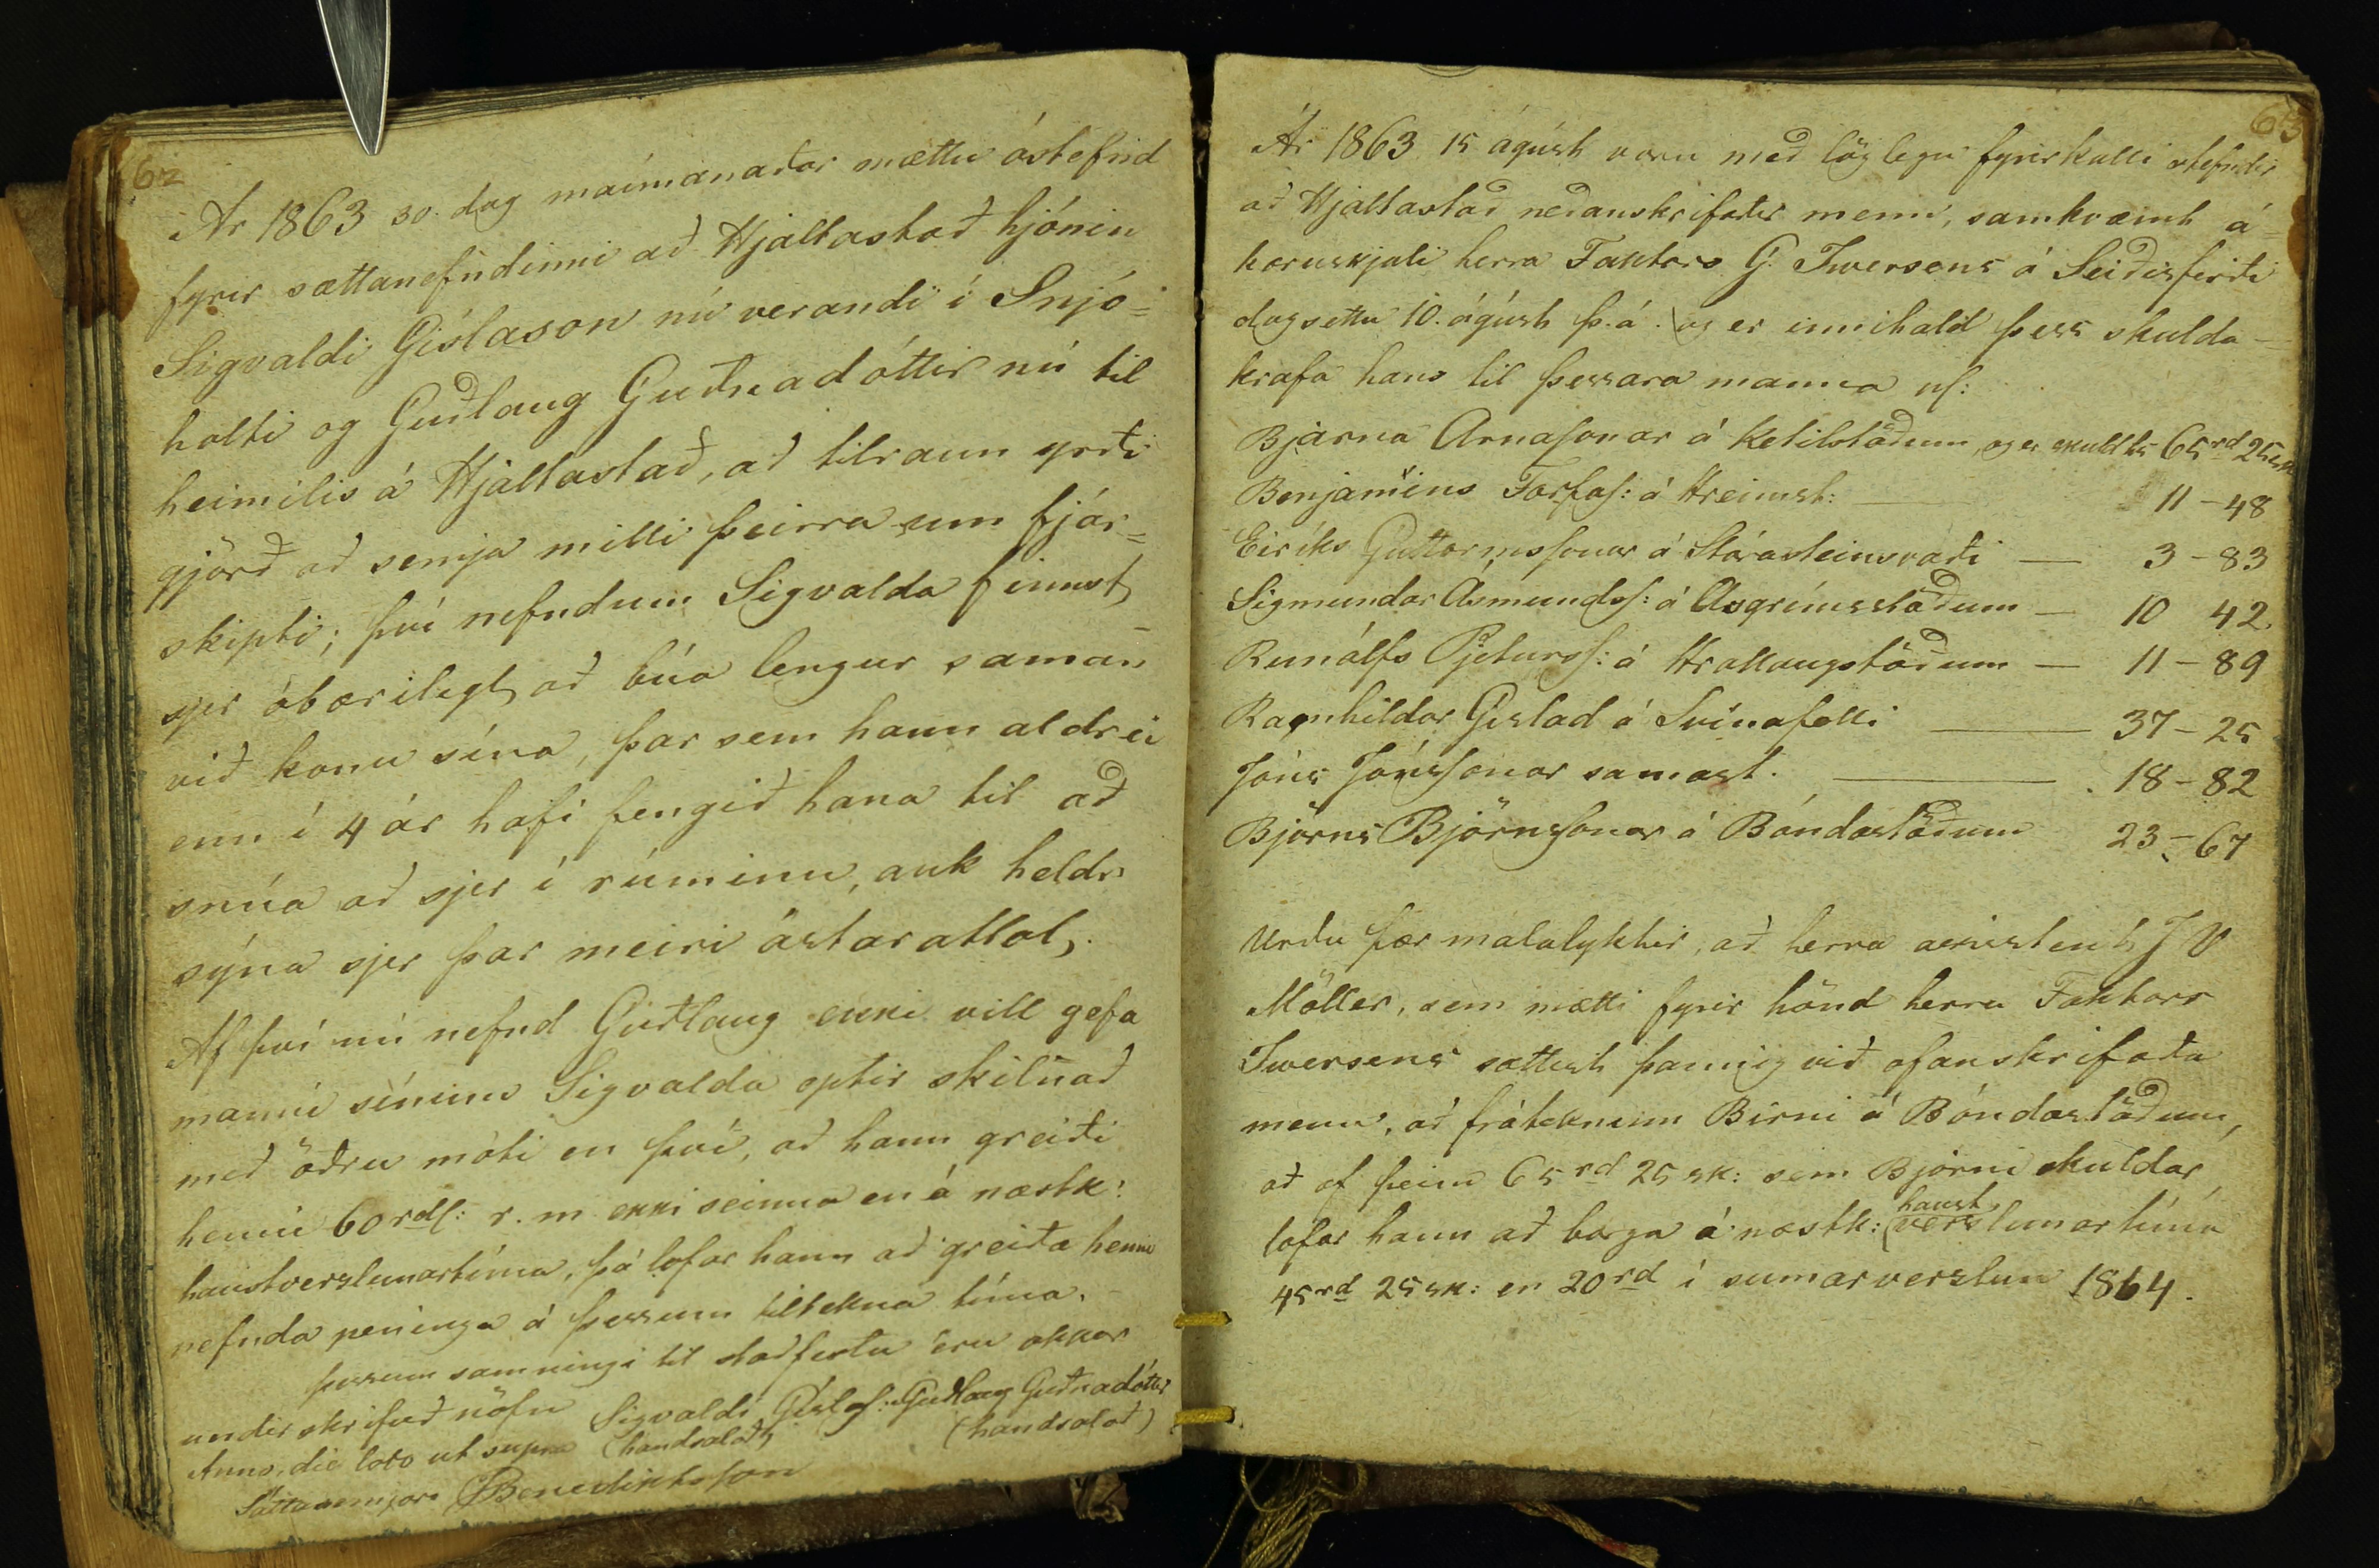 62
Ár 1863 30. dag maímánaðar mættu óstefnd
fyrir sættanefndinni að Hjaltastað hjónin
Sigvaldi Gíslason nú verandi í Snjó=
holti og Guðlaug Guðnadóttir nú til
heimilis á Hjaltastað, að tilraun yrði
gjörð að semja milli þeirra um fjár=
skipti; því nefndum Sigvalda finnst
sjer óbærilegt að búa lengur saman
við konu sína, þar sem hann aldrei
enn í 4 ár hafi fengið hana til að
snúa að sjer í rúminu, auk heldr
sýna sjer þar meiri ástaratlot.
Af því nú nefnd Guðlaug ekki vill gefa
manni sínum Sigvalda eptir skilnað
með öðru móti en því, að hann greiði
henni 60 rdl: r.m ekki seinna en á næstk:
haustverslunartíma, þá lofar hann að greiða henni
nefnda peninga á þessum tiltekna tíma.
þessum samningi til staðfestu eru okkar
undirskrifuð nöfn Sigvaldi Gíslas: Guðlaug Guðnadóttir
Anno, die loco ut supra (handsalað) (handsalað)
Sáttasemjari Benediktsson
63
Ár 1863 15 ágúst voru með löglegu fyrirkalli stefndir
að Hjaltastað neðanskrifaðir menn, samkvæmt á=
kæruskjali herra Faktors G. Iversens á Seiðisfirði
dagsettu 10. ágúst þ.á. og er innihald þess skulda-
krafa hans til þessara manna nf:
Bjarna Arnasonar á Ketilstöðum, og er skuld hs 65rd 25sk
Benjamíns Torfas: á Hreimst: 11-48
Eiríks Guttormssonar á Stórasteinsvaði — 3-83
Sigmundar Asmundss: á Asgrímsstöðum — 10 42.
Runólfs Pjeturss: á Hrollaugstöðum — 11-89
Ragnhildar Gíslad á Svínafelli — 37-25
Jóns Jónssonar samast. — 18-82
Björns Björnssonar á Bóndastöðum 23-67
Urðu þær málalyktir, að herra assistent J V
Möller, sem mætti fyrir hönd herra Faktors
Iversens sættist þannig við ofanskrifaða
menn, að fráteknum Birni á Bóndastöðum,
að af þeim 65rd 25 sk: sem Bjarni skuldar,
haust
lofar hann að borga á næstk: verslunartíma
45rd 25 sk: en 20rd í sumarverslun 1864.